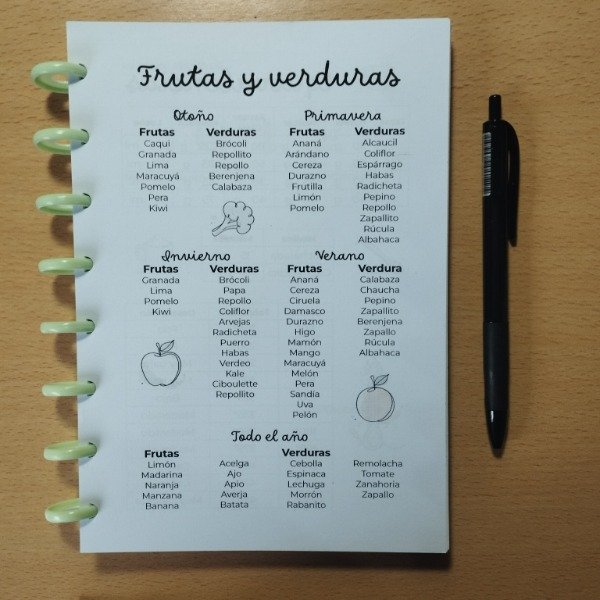 Frutas y verduras
Otoño
Frutas Verduras
Caqui Brócoli
Granada Repollito
Lima Repollo
Maracuyá Berenjena
Pomelo Calabaza
Pera
Kiwi
Primavera
Frutas Verduras
Ananá Alcaucil
Arándano Coliflor
Cereza Espárrago
Durazno Habas
Frutilla Radicheta
Limón Pepino
Pomelo Repollo
Zapallito
Rúcula
Albahaca
Invierno
Frutas Verduras
Granada Brócoli
Lima Papa
Pomelo Repollo
Kiwi Coliflor
Arvejas
Radicheta
Puerro
Habas
Verdeo
Kale
Ciboulette
Repollito
Verano
Frutas Verdura
Ananá Calabaza
Cereza Chaucha
Ciruela Pepino
Damasco Zapallito
Durazno Berenjena
Higo Zapallo
Mamón Rúcula
Mango Albahaca
Maracuyá
Melón
Pera
Sandía
Uva
Pelón
Todo el año
Frutas Verduras
Limón Acelga Cebolla Remolacha
Madarina Ajo Espinaca Tomate
Naranja Apio Lechuga Zanahoria
Manzana Averja Morrón Zapallo
Banana Batata Rabanito